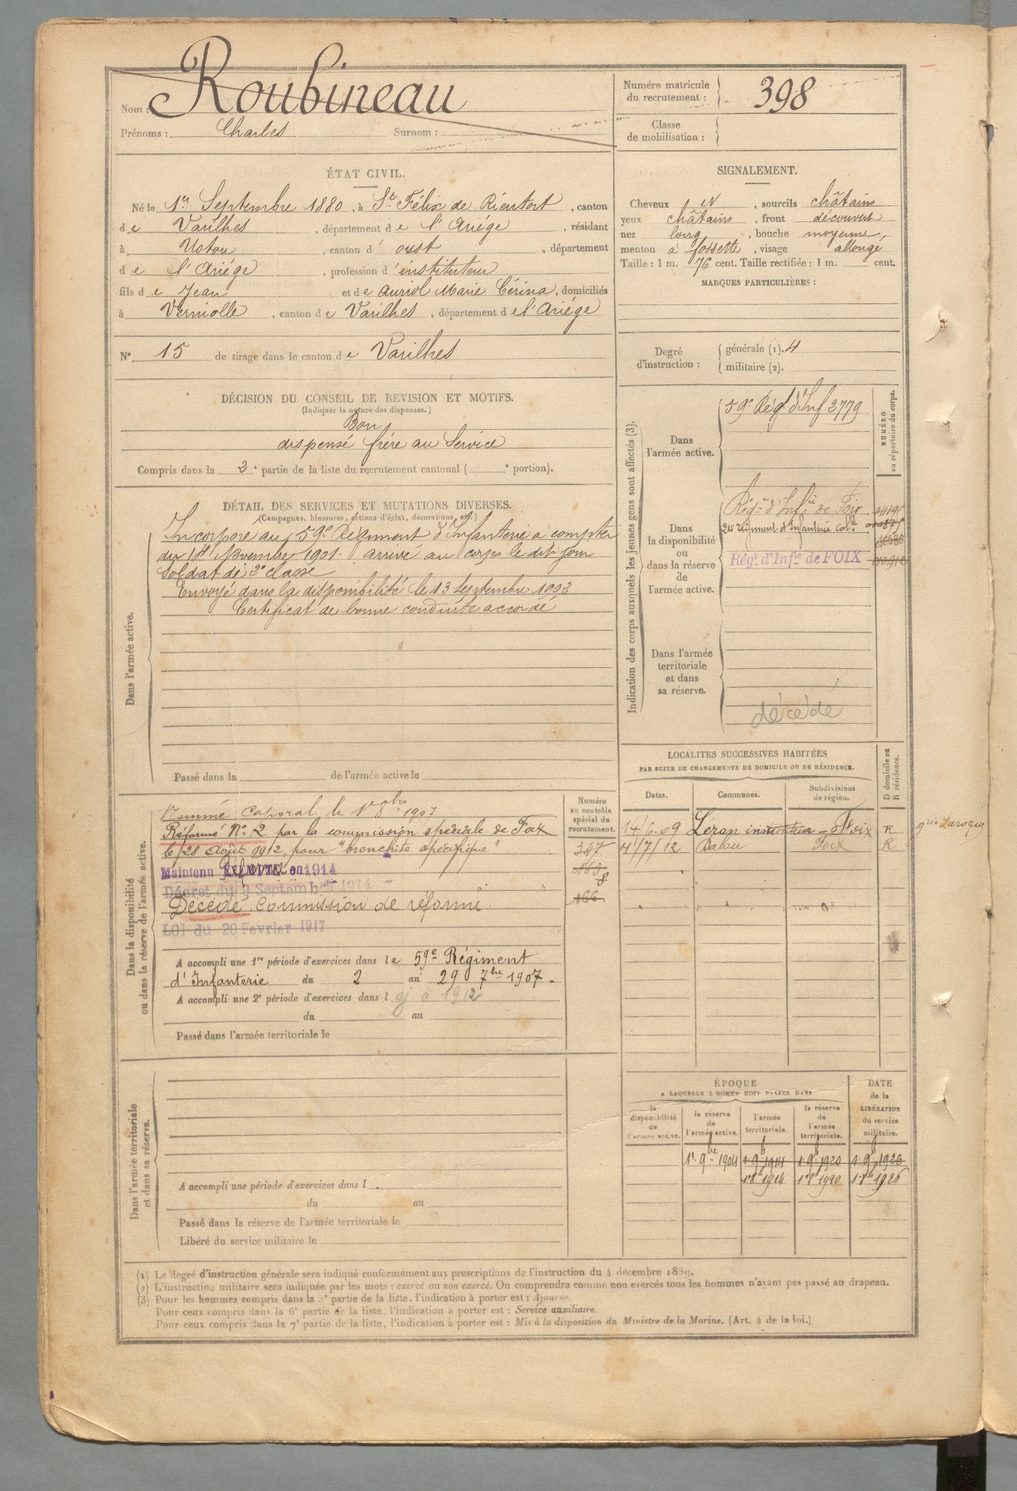 Nom : Roubineau
Prénoms : Charles Surnom :
Numéro matricule du recrutement : 398
Classe de mobilisation :
ÉTAT CIVIL.
Né le 1er Septembre 1880, à St Félix de Rieutort, canton
de Varilhes, département de l'Ariège, résidant
à Ustou, canton d' oust, département
de l'Ariége, profession d'instituteur
fils de Jean et de Auriol Marie Cérina, domiciliés
à Verniolle, canton de Varilhes, département de l'Ariége
N° 15 de tirage dans le canton de Varilhes
SIGNALEMENT.
Cheveux et, sourcils châtains
yeux châtains, front découvert
nez long, bouche moyenne,
menton à fossette, visage allongé
Taille : 1 m. 76 cent. Taille rectifiée : 1 m. cent.
MARQUES PARTICULIÈRES :
Degré d'instruction : générale (1). 4
militaire (2).
DÉCISION DU CONSEIL DE REVISION ET MOTIFS.
(Indiquer la nature des dispenses.)
Bon
dispensé frère au Service
Compris dans la 3e partie de la liste du recrutement cantonal ( e portion).
DÉTAIL DES SERVICES ET MUTATIONS DIVERSES.
(Campagnes, blessures, actions d'éclat, décorations, etc.)
Dans l'armée active.
Incorporé au 59e Régiment d'Infanterie à compter
du 14 Novembre 1901. arrivé au corps le dit jour
Soldat de 2e classe
Envoyé dans la disponibilité le 13 Septembre 1902
Certificat de bonne conduite accordé
Passé dans la de l'armée active le
Indication des corps auxquels les jeunes gens sont affectés (3).
NUMÉRO au répertoire du corps.
Dans l'armée active.
59e Régt d'Inf 3779
Dans la disponibilité ou dans la réserve de l'armée active.
Régt d'Infie de Foix
24 Régiment d'Infanterie Cole
Régt d'Infie de FOIX
Dans l'armée territoriale et dans sa réserve.
décédé
LOCALITÉS SUCCESSIVES HABITÉES
PAR SUITE DE CHANGEMENTS DE DOMICILE OU DE RÉSIDENCE.
Dates. Communes. Subdivisions de région. D domicile ou R résidence.
Léran instituteur Foix R
4/7/12 Foix R
Dans la disponibilité ou dans la réserve de l'armée active.
Numéro au contrôle spécial du recrutement.
Nommé Caporal le 1907
Réformé N° 2 par la commission spéciale de Foix
28 Août 1912 pour "bronchite spécifique"
347
Maintenu EXEMPTÉ en 1914
Décret du 9 Septembre 1914
166
Décédé. Commission de réforme
LOI du 20 Fevrier 1917
A accompli une 1re période d'exercices dans le 59e Régiment
d'Infanterie du 2 au 29 7bre 1907.
A accompli une 2e période d'exercices dans l
du au
Passé dans l'armée territoriale le
Dans l'armée territoriale et dans sa réserve.
A accompli une période d'exercices dans l
du au
Passé dans la réserve de l'armée territoriale le
Libéré du service militaire le
ÉPOQUE
A LAQUELLE L'HOMME DOIT PASSER DANS
la disponibilité de l'armée active. la réserve de l'armée active. l'armée territoriale. la réserve de l'armée territoriale.
DATE de la LIBÉRATION du service militaire.
1er 9bre 1904
(1) Le degré d'instruction générale sera indiqué conformément aux prescriptions de l'instruction du 4 décembre 1889.
(2) L'instruction militaire sera indiquée par les mots : exercé ou non exercé. On comprendra comme non exercés tous les hommes n'ayant pas passé au drapeau.
(3) Pour les hommes compris dans la 5e partie de la liste, l'indication à porter est : Ajourné.
Pour ceux compris dans la 6e partie de la liste, l'indication à porter est : Service auxiliaire.
Pour ceux compris dans la 7e partie de la liste, l'indication à porter est : Mis à la disposition du Ministre de la Marine. (Art. 4 de la loi.)